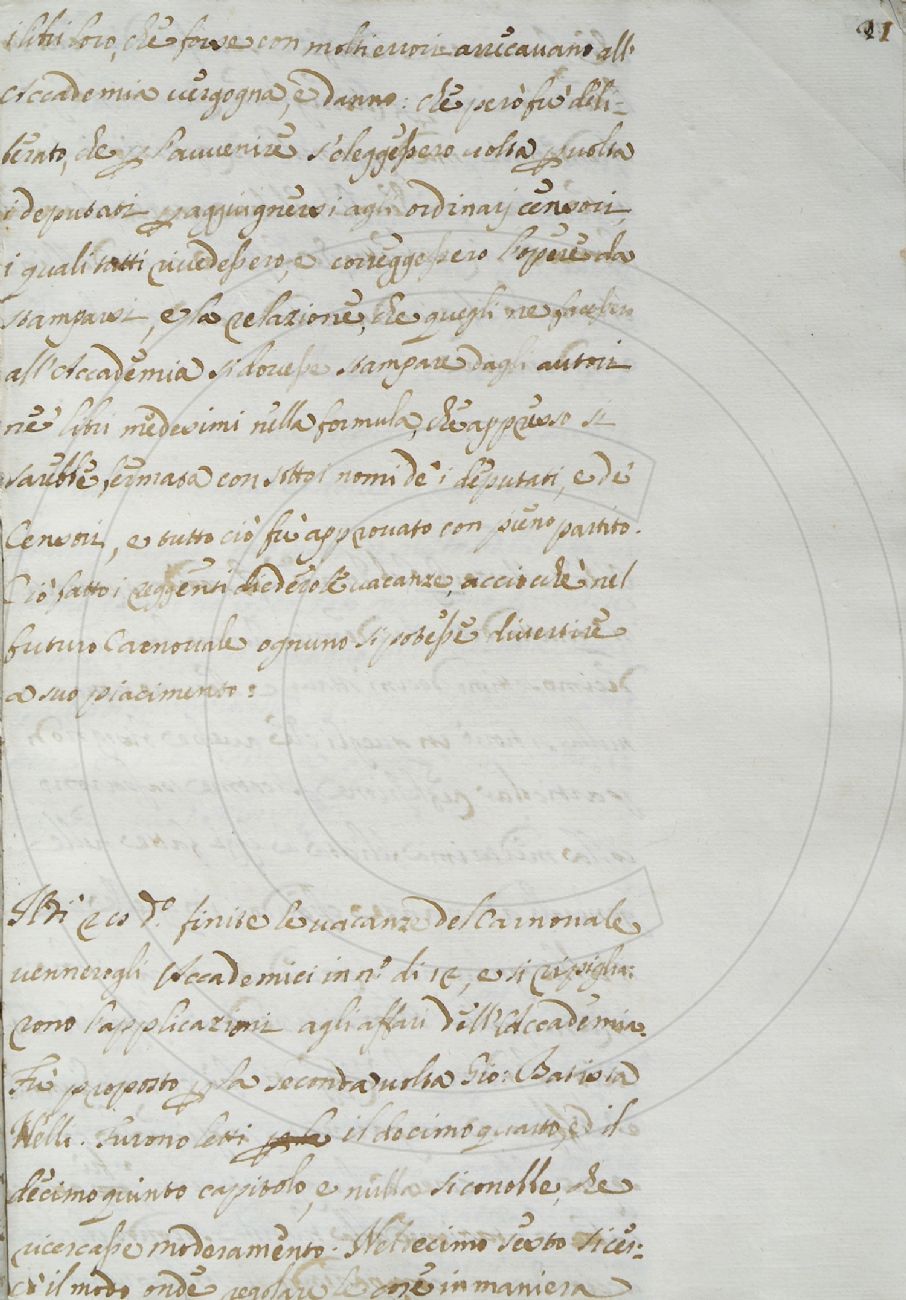 21
i libri loro, che forse con molti errori arrecavano all'
Accademia vergogna, e danno: che però fu deli=
berato, che p l'avvenire s'eleggessero volta p volta
i deputati p aggiugnersi agli ordinarij censori,
i quali tutti rivedessero, e correggessero l'opere da
stamparsi, e la relazione, che quegli ne facessero
all'Accademia si dovesse stampare dagli autori
ne' libri medesimi nella formula, che appresso si
sarebbe fermata con sotto i nomi de' i deputati, e de'
Censori, e tutto ciò fu approvato con pieno partito.
Ciò fatto i reggenti diedero le vacanze, acciochè nel
futuro Carnovale ognuno si potesse divertire
a suo piacimento:
Il dì d.º finite le vacanze del Carnovale
vennero gli Accademici in n.º di 12, e si ripiglia=
rono l'applicazioni agli affari dell'Accademia.
Fu proposto p la seconda volta Gio: Batista
Nelli. Furono letti il decimo quarto, ed il
decimo quinto capitolo, e nulla si conobbe, che
ricercasse moderamento. Nel decimo sesto si cer=
cò il modo onde regolare le cose in maniera